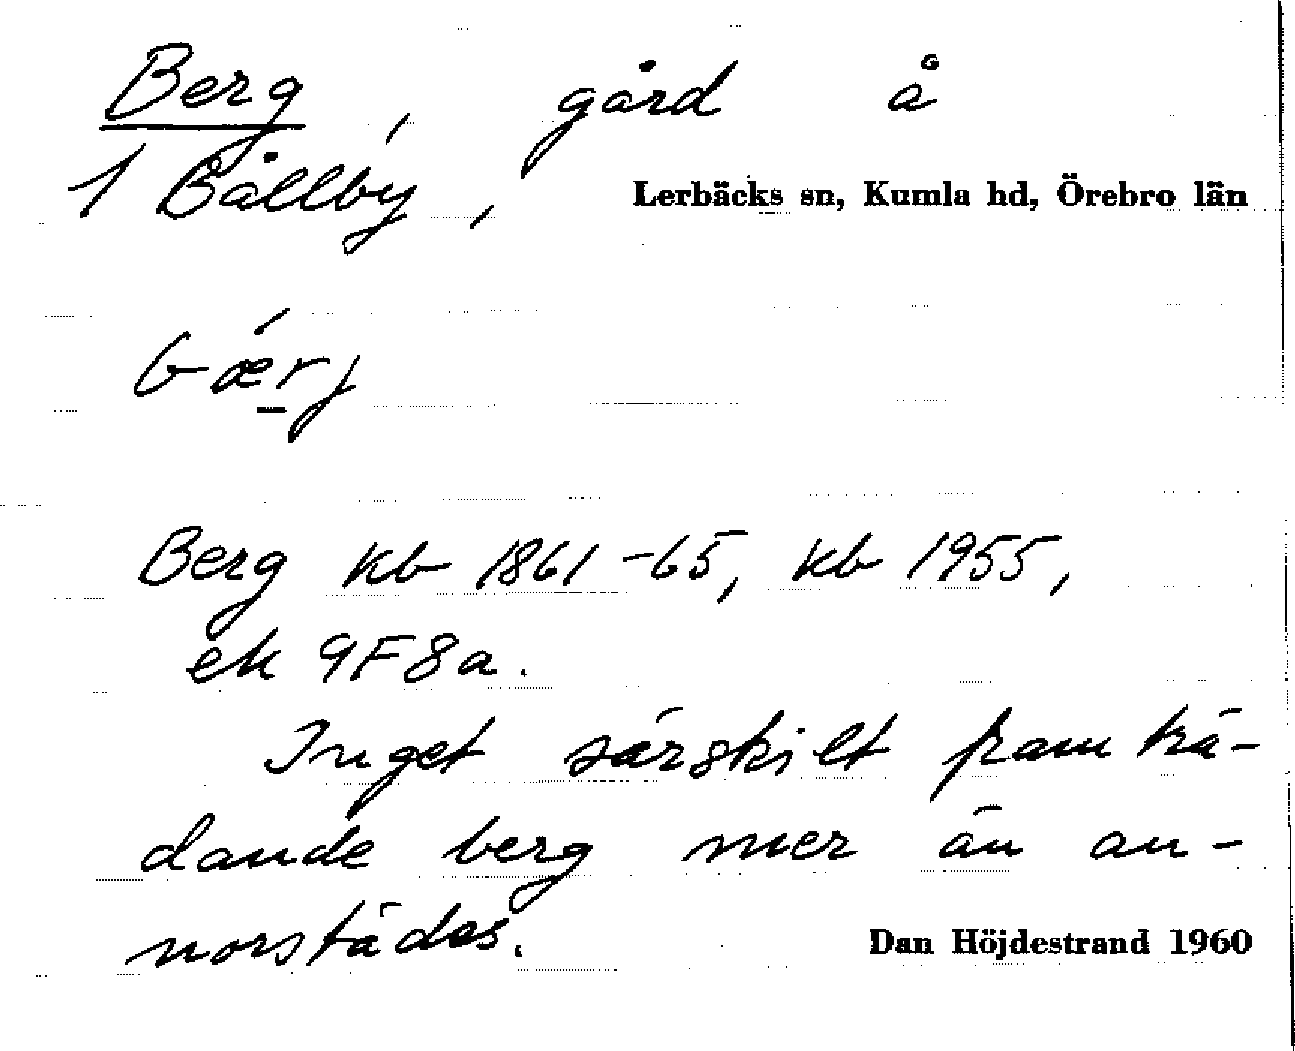 Berg, gård å
1 Bållby, Lerbäcks sn, Kumla hd, Örebro län
bærj
Berg kb 1861-65, kb 1955,
ek 9F8a.
Inget särskilt framträ-
dande berg mer än an-
norstädes.
Dan Höjdestrand 1960